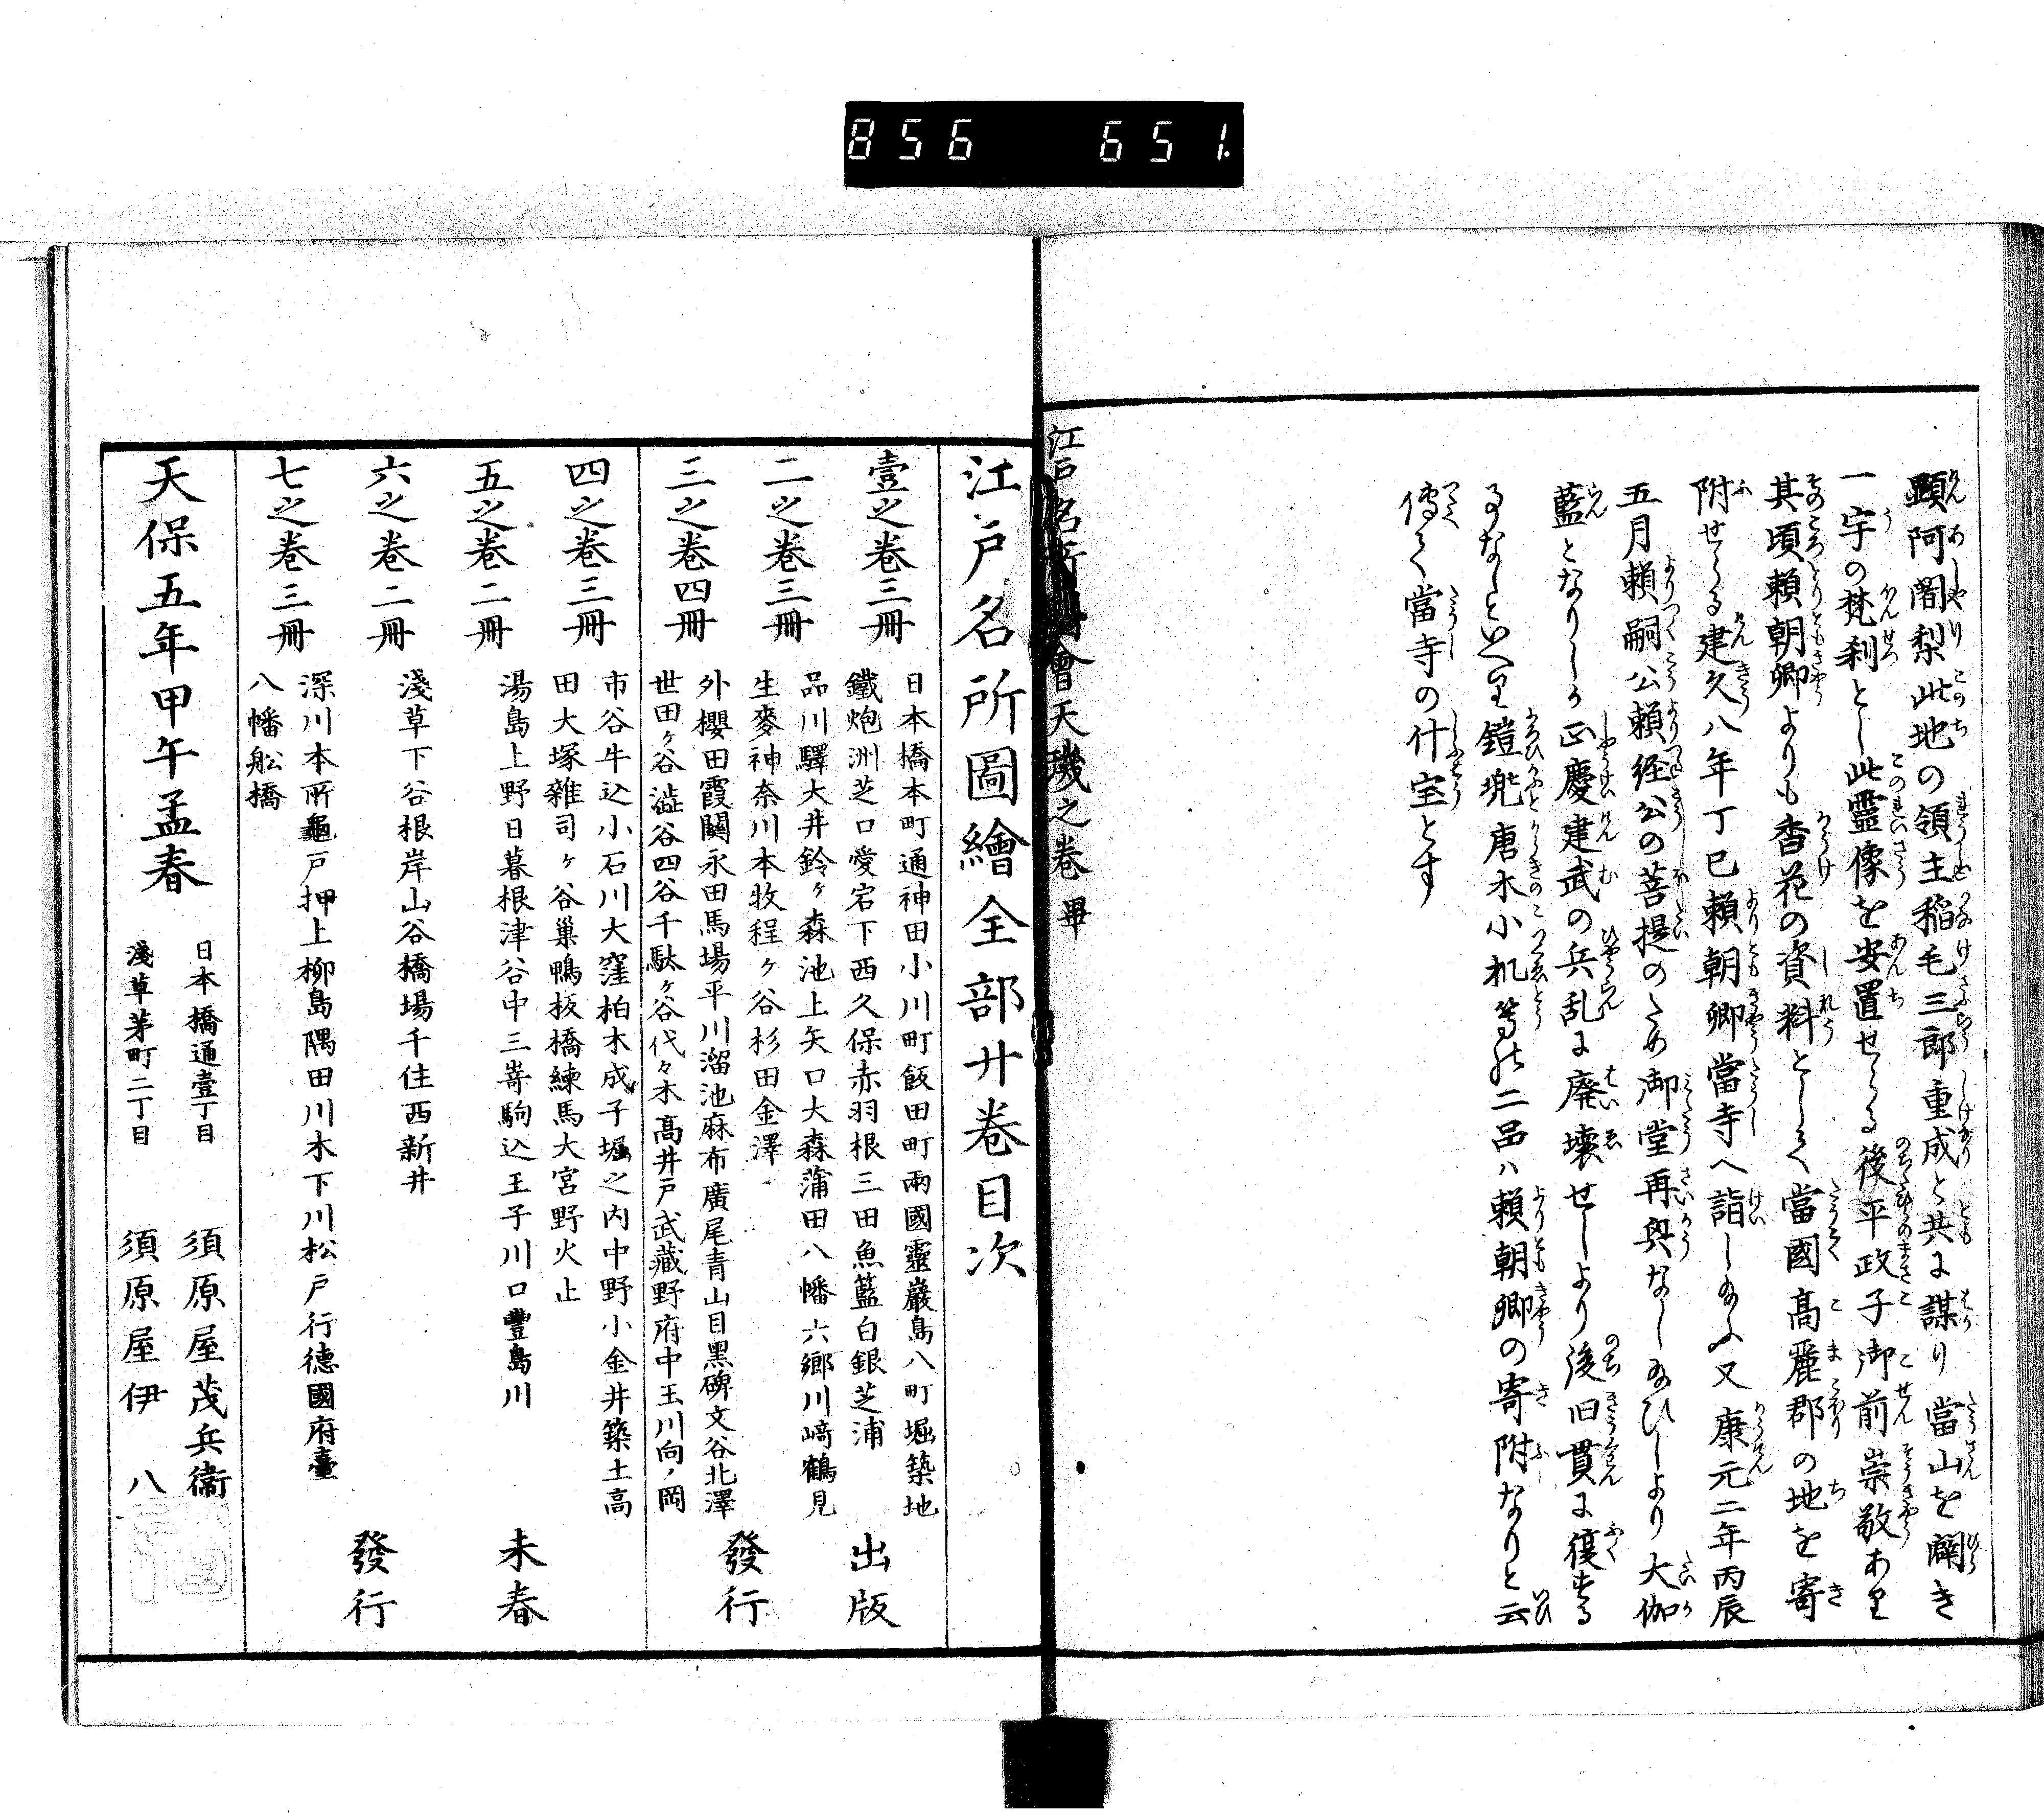 856 651
顕阿闍梨此地の領主稲毛三郎重成と共に謀り當山を闢き
一宇の梵刹とし此霊像を安置せらる後平政子御前崇敬あり
其頃頼朝卿よりも香花の資料として當國高麗郡の地を寄
附せらる建久八年丁巳頼朝卿當寺へ詣し給ふ又康元二年丙辰
五月頼嗣公頼経公の菩提のため御堂再興なし給ひしより大伽
藍となりしか正慶建武の兵乱に廃壊せしより後旧貫に復する
事なしといへり鎧兜唐木小机等の二品ハ頼朝卿の寄附なりと云
傳て當寺の什宝とす
江戸名所圖會天璣之巻 畢
江戸名所圖繪全部廿巻目次
壹之巻三冊
日本橋本町通神田小川町飯田町兩國靈巖島八町堀築地
鐵炮洲芝口愛宕下西久保赤羽根三田魚籃白銀芝浦
二之巻三冊
品川驛大井鈴ヶ森池上矢口大森蒲田八幡六郷川﨑鶴見
生麥神奈川本牧程ヶ谷杉田金澤
三之巻四冊
外櫻田霞關永田馬場平川溜池麻布廣尾青山目黒碑文谷北澤
世田ヶ谷澁谷四谷千駄ヶ谷代々木髙井戸武蔵野府中玉川向ノ岡
出版
發行
四之巻三冊
市谷牛込小石川大窪柏木成子堀之内中野小金井築土高
田大塚雜司ヶ谷巣鴨板橋練馬大宮野火止
五之巻二冊
湯島上野日暮根津谷中三嵜駒込王子川口豊島川
六之巻二冊
淺草下谷根岸山谷橋場千住西新井
七之巻三冊
深川本所龜戸押上柳島隅田川木下川松戸行德國府臺
八幡舩橋
未春
發行
天保五年甲午孟春
日本橋通壹丁目 須原屋茂兵衞
淺草茅町二丁目 須原屋伊八